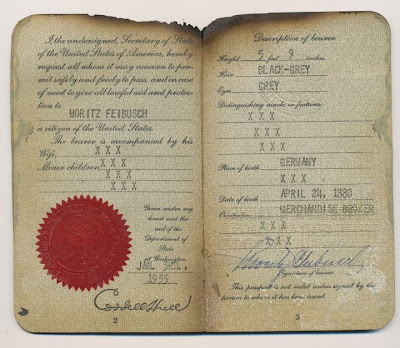 I, the undersigned, Secretary of State
of the United States of America, hereby
request all whom it may concern to per-
mit safely and freely to pass, and in case
of need to give all lawful aid and protec-
tion to
MORITZ FEIBUSCH
a citizen of the United States.
The bearer is accompanied by his
Wife, X X X
Minor children, X X X
X X X
Given under my
hand and the
seal of the
Department of
State
at Washington
JAN.
Cordell Hull
2
Description of bearer
Height 5 feet 9 inches
Hair BLACK-GREY
Eyes GREY
Distinguishing marks or features:
X X X
X X X
X X X
Place of birth GERMANY
X X X
Date of birth APRIL 24, 1880
Occupation MERCHANDISE BROKER
X X X
Moritz Feibusch
Signature of bearer
This passport is not valid unless signed by the
person to whom it has been issued.
3